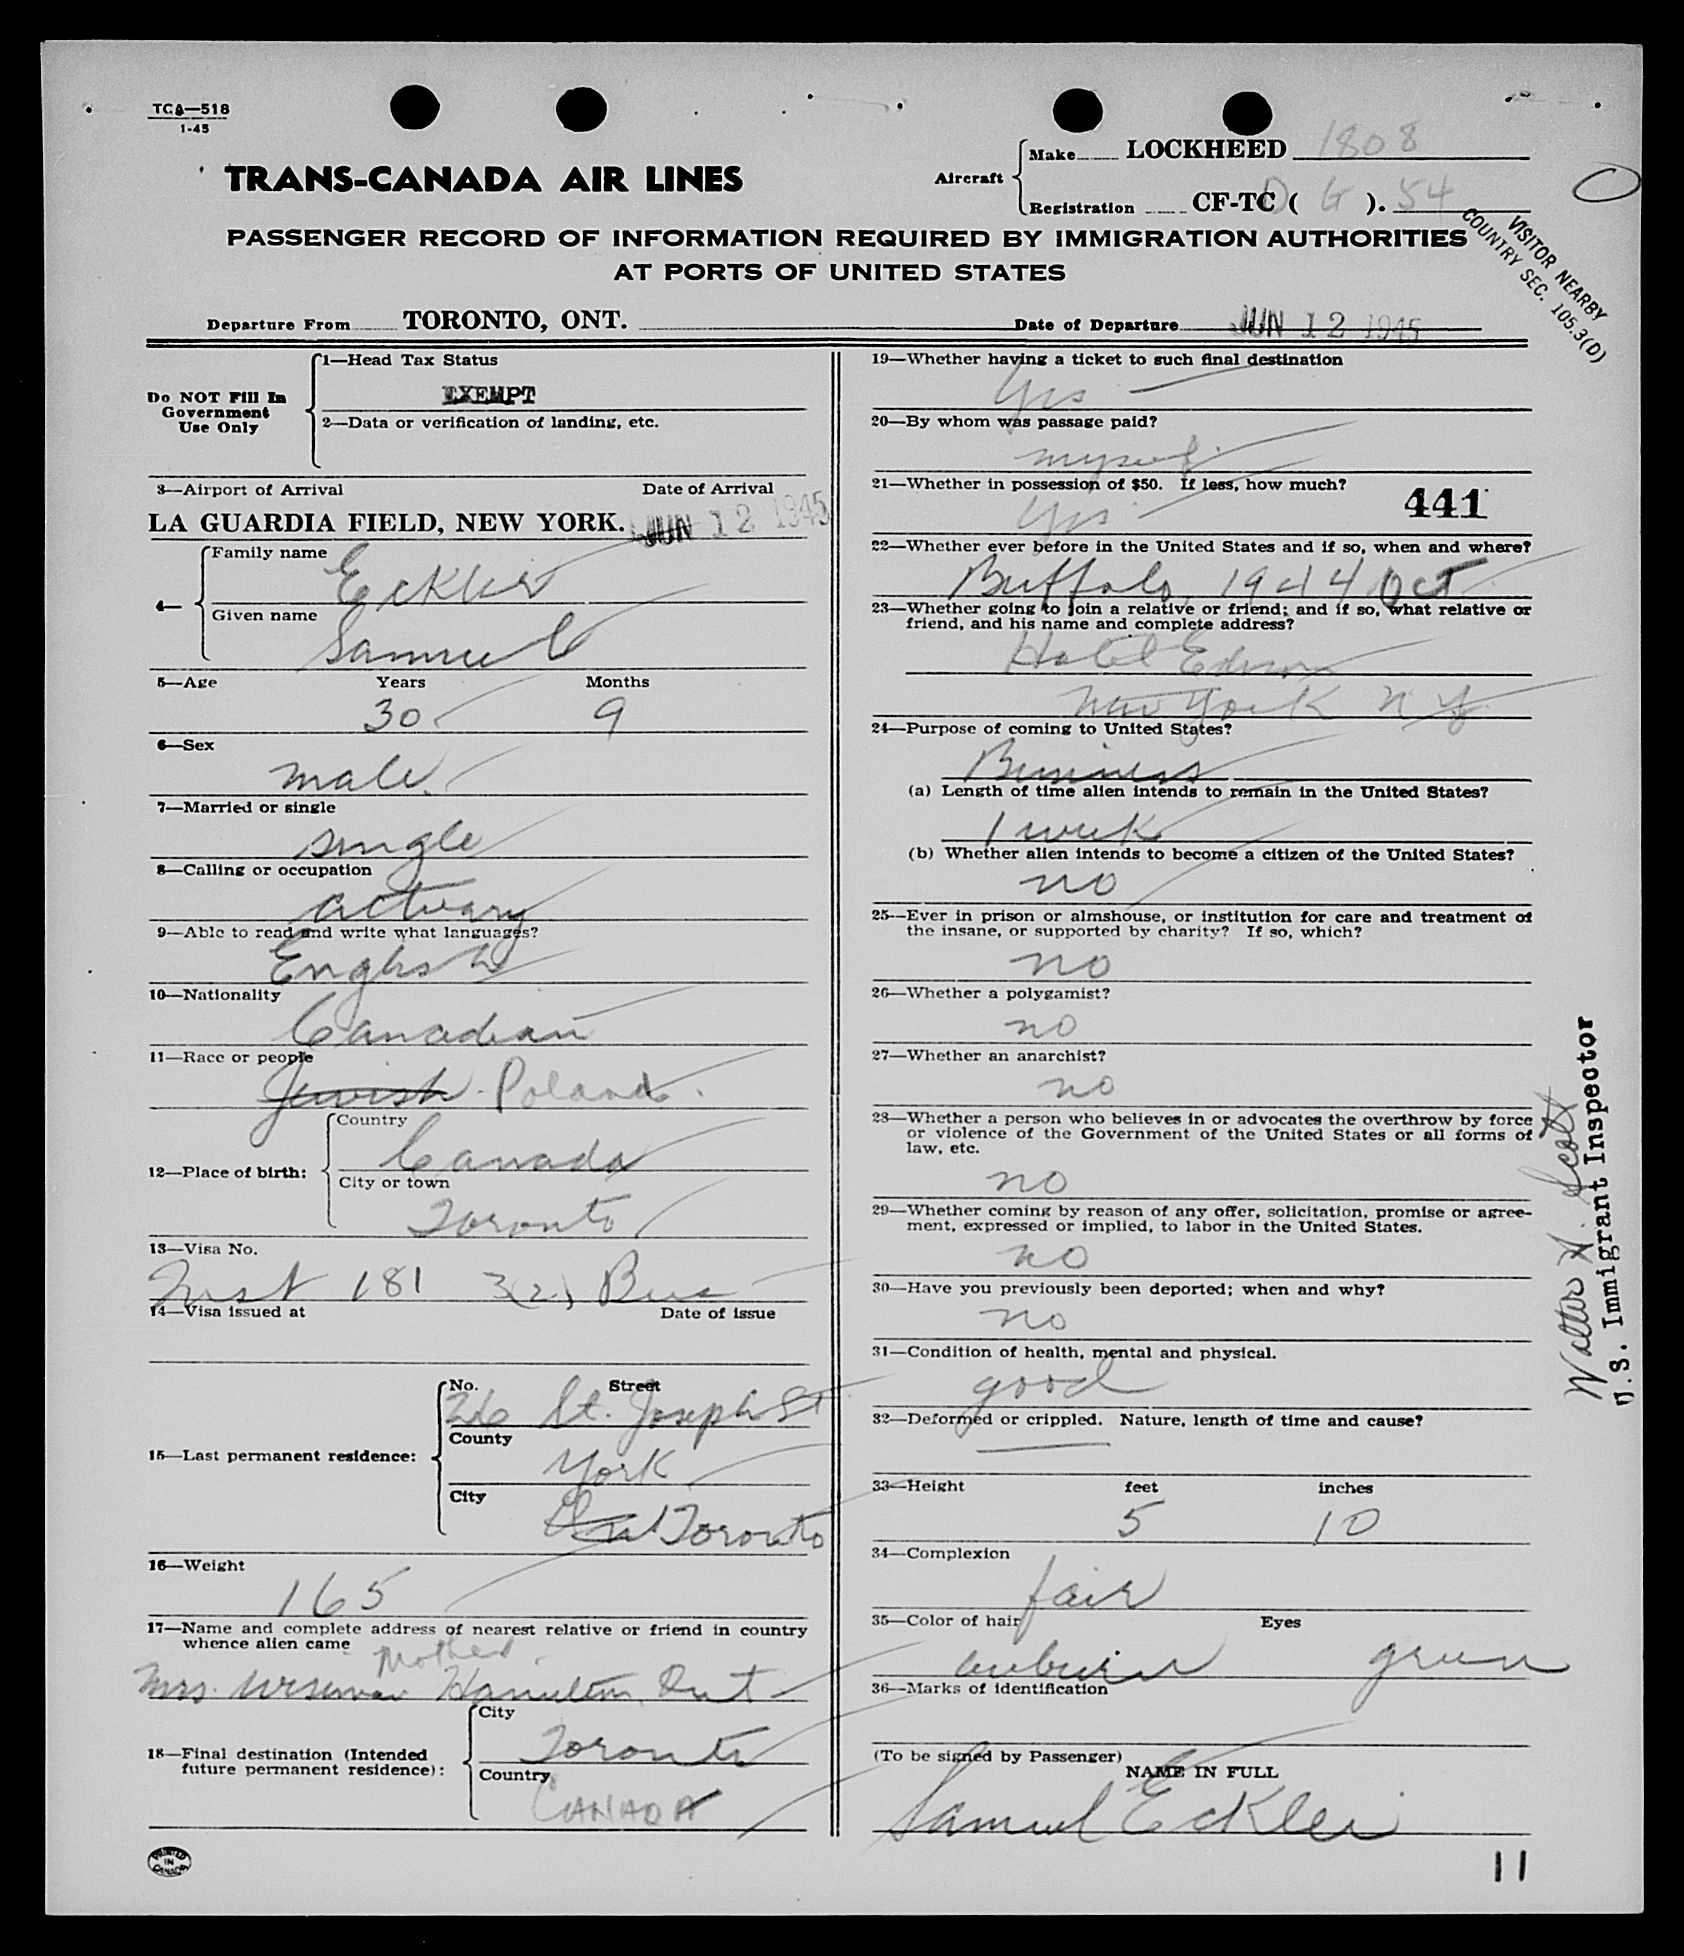 TCA—518
1-45
TRANS-CANADA AIR LINES
Aircraft
Make LOCKHEED 1808
Registration CF-TC ( G ). 54
PASSENGER RECORD OF INFORMATION REQUIRED BY IMMIGRATION AUTHORITIES
AT PORTS OF UNITED STATES
VISITOR NEARBY
COUNTRY SEC. 105.3(D)
Departure From TORONTO, ONT.
Date of Departure JUN 12 1945
Do NOT Fill In
Government
Use Only
1—Head Tax Status
EXEMPT
2—Data or verification of landing, etc.
3—Airport of Arrival Date of Arrival
LA GUARDIA FIELD, NEW YORK. JUN 12 1945
4—
Family name
Eckler
Given name
Samuel
5—Age Years Months
30 9
6—Sex
male
7—Married or single
single
8—Calling or occupation
actuary
9—Able to read and write what languages?
English
10—Nationality
Canadian
11—Race or people
Jewish Poland
12—Place of birth:
Country
Canada
City or town
Toronto
13—Visa No.
181 3(2) Bus
14—Visa issued at Date of issue
15—Last permanent residence:
No. Street
26 St. Joseph St
County
York
City
Ont Toronto
16—Weight
165
17—Name and complete address of nearest relative or friend in country
whence alien came
Mother
Mrs. Wiseman Hamilton, Ont
18—Final destination (Intended
future permanent residence):
City
Toronto
Country
CANADA
PRINTED
IN
CANADA
19—Whether having a ticket to such final destination
Yes
20—By whom was passage paid?
myself
21—Whether in possession of $50. If less, how much?
Yes
441
22—Whether ever before in the United States and if so, when and where?
Buffalo, 1944 Oct
23—Whether going to join a relative or friend; and if so, what relative or
friend, and his name and complete address?
Hotel Edison
New York N.Y.
24—Purpose of coming to United States?
Business
(a) Length of time alien intends to remain in the United States?
1 week
(b) Whether alien intends to become a citizen of the United States?
no
25—Ever in prison or almshouse, or institution for care and treatment of
the insane, or supported by charity? If so, which?
no
26—Whether a polygamist?
no
27—Whether an anarchist?
no
28—Whether a person who believes in or advocates the overthrow by force
or violence of the Government of the United States or all forms of
law, etc.
no
29—Whether coming by reason of any offer, solicitation, promise or agree-
ment, expressed or implied, to labor in the United States.
no
30—Have you previously been deported; when and why?
no
31—Condition of health, mental and physical.
good
32—Deformed or crippled. Nature, length of time and cause?
33—Height feet inches
5 10
34—Complexion
fair
35—Color of hair Eyes
auburn green
36—Marks of identification
(To be signed by Passenger)
NAME IN FULL
Samuel Eckler
11
Walter A. Scott
U.S. Immigrant Inspector